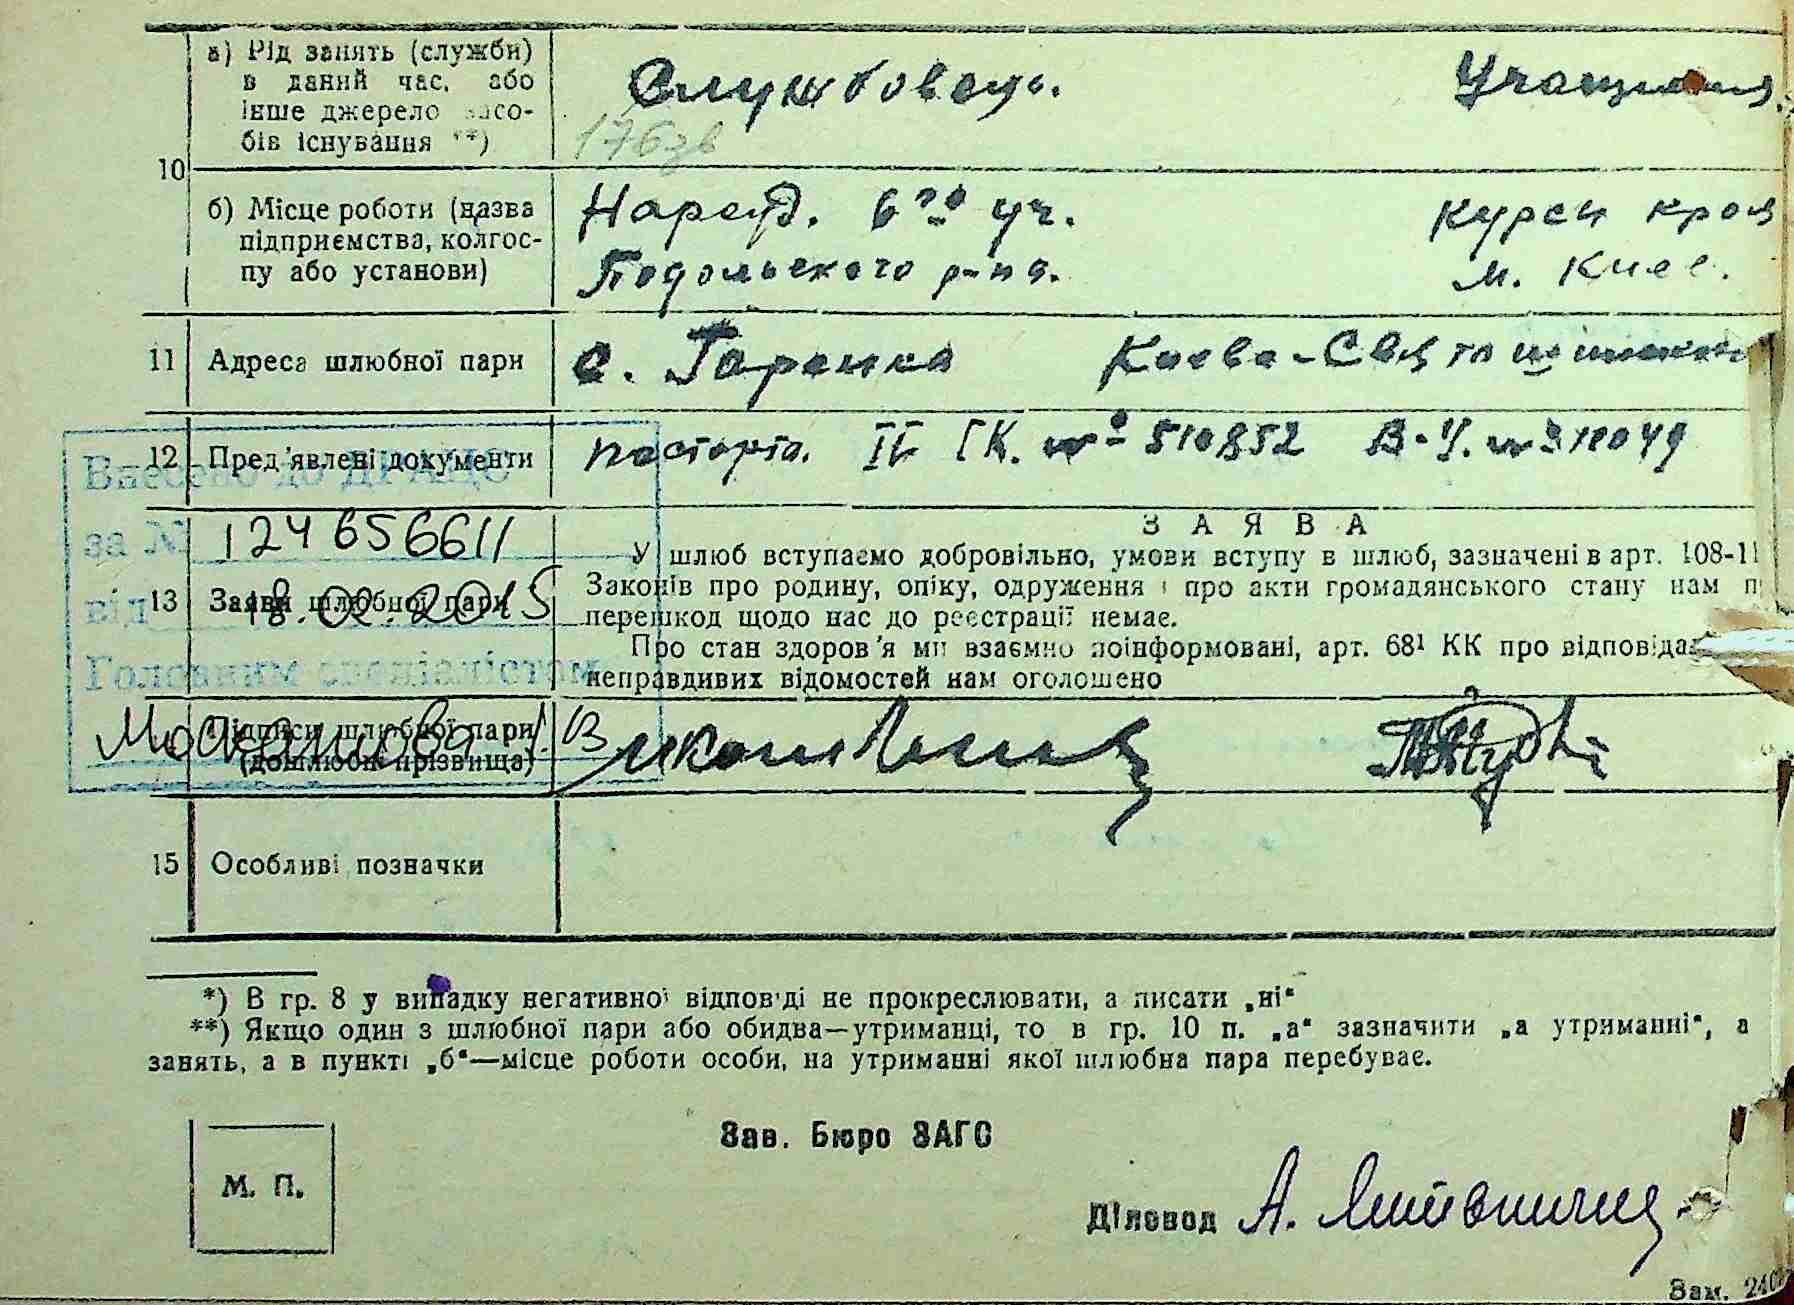 а) Рід занять (служби)
в даний час, або
інше джерело засо-
бів існування **)
Службовець.
Учащаяся.
176зв
10
б) Місце роботи (назва
підприємства, колгос-
пу або установи)
Нарсуд. 6го уч.
Подольского р-на.
Курси кроя
м. Києв.
11 Адреса шлюбної пари
с. Горенка Києво-Святошинськ
12 Пред'явлені документи
паспорта. IV ГК. № 510852 В-У. № 318049
Внесено до ДРАЦС
за № 124656611
від 18.02.2015
Головним спеціалістом
13 Заяви шлюбної пари
ЗАЯВА
У шлюб вступаємо добровільно, умови вступу в шлюб, зазначені в арт. 108-11
Законів про родину, опіку, одруження і про акти громадянського стану нам п
перешкод щодо нас до реєстрації немає.
Про стан здоров'я ми взаємно поінформовані, арт. 68¹ КК про відповідал
неправдивих відомостей нам оголошено
Підписи шлюбної пари
(дошлюбні прізвища)
15 Особливі позначки
*) В гр. 8 у випадку негативної відповіді не прокреслювати, а писати „ні“
**) Якщо один з шлюбної пари або обидва—утриманці, то в гр. 10 п. „а“ зазначити „а утриманні“, а
занять, а в пункті „б“—місце роботи особи, на утриманні якої шлюбна пара перебуває.
Зав. Бюро ЗАГС
М. П.
Діловод А. Литвинчук
Зам. 240